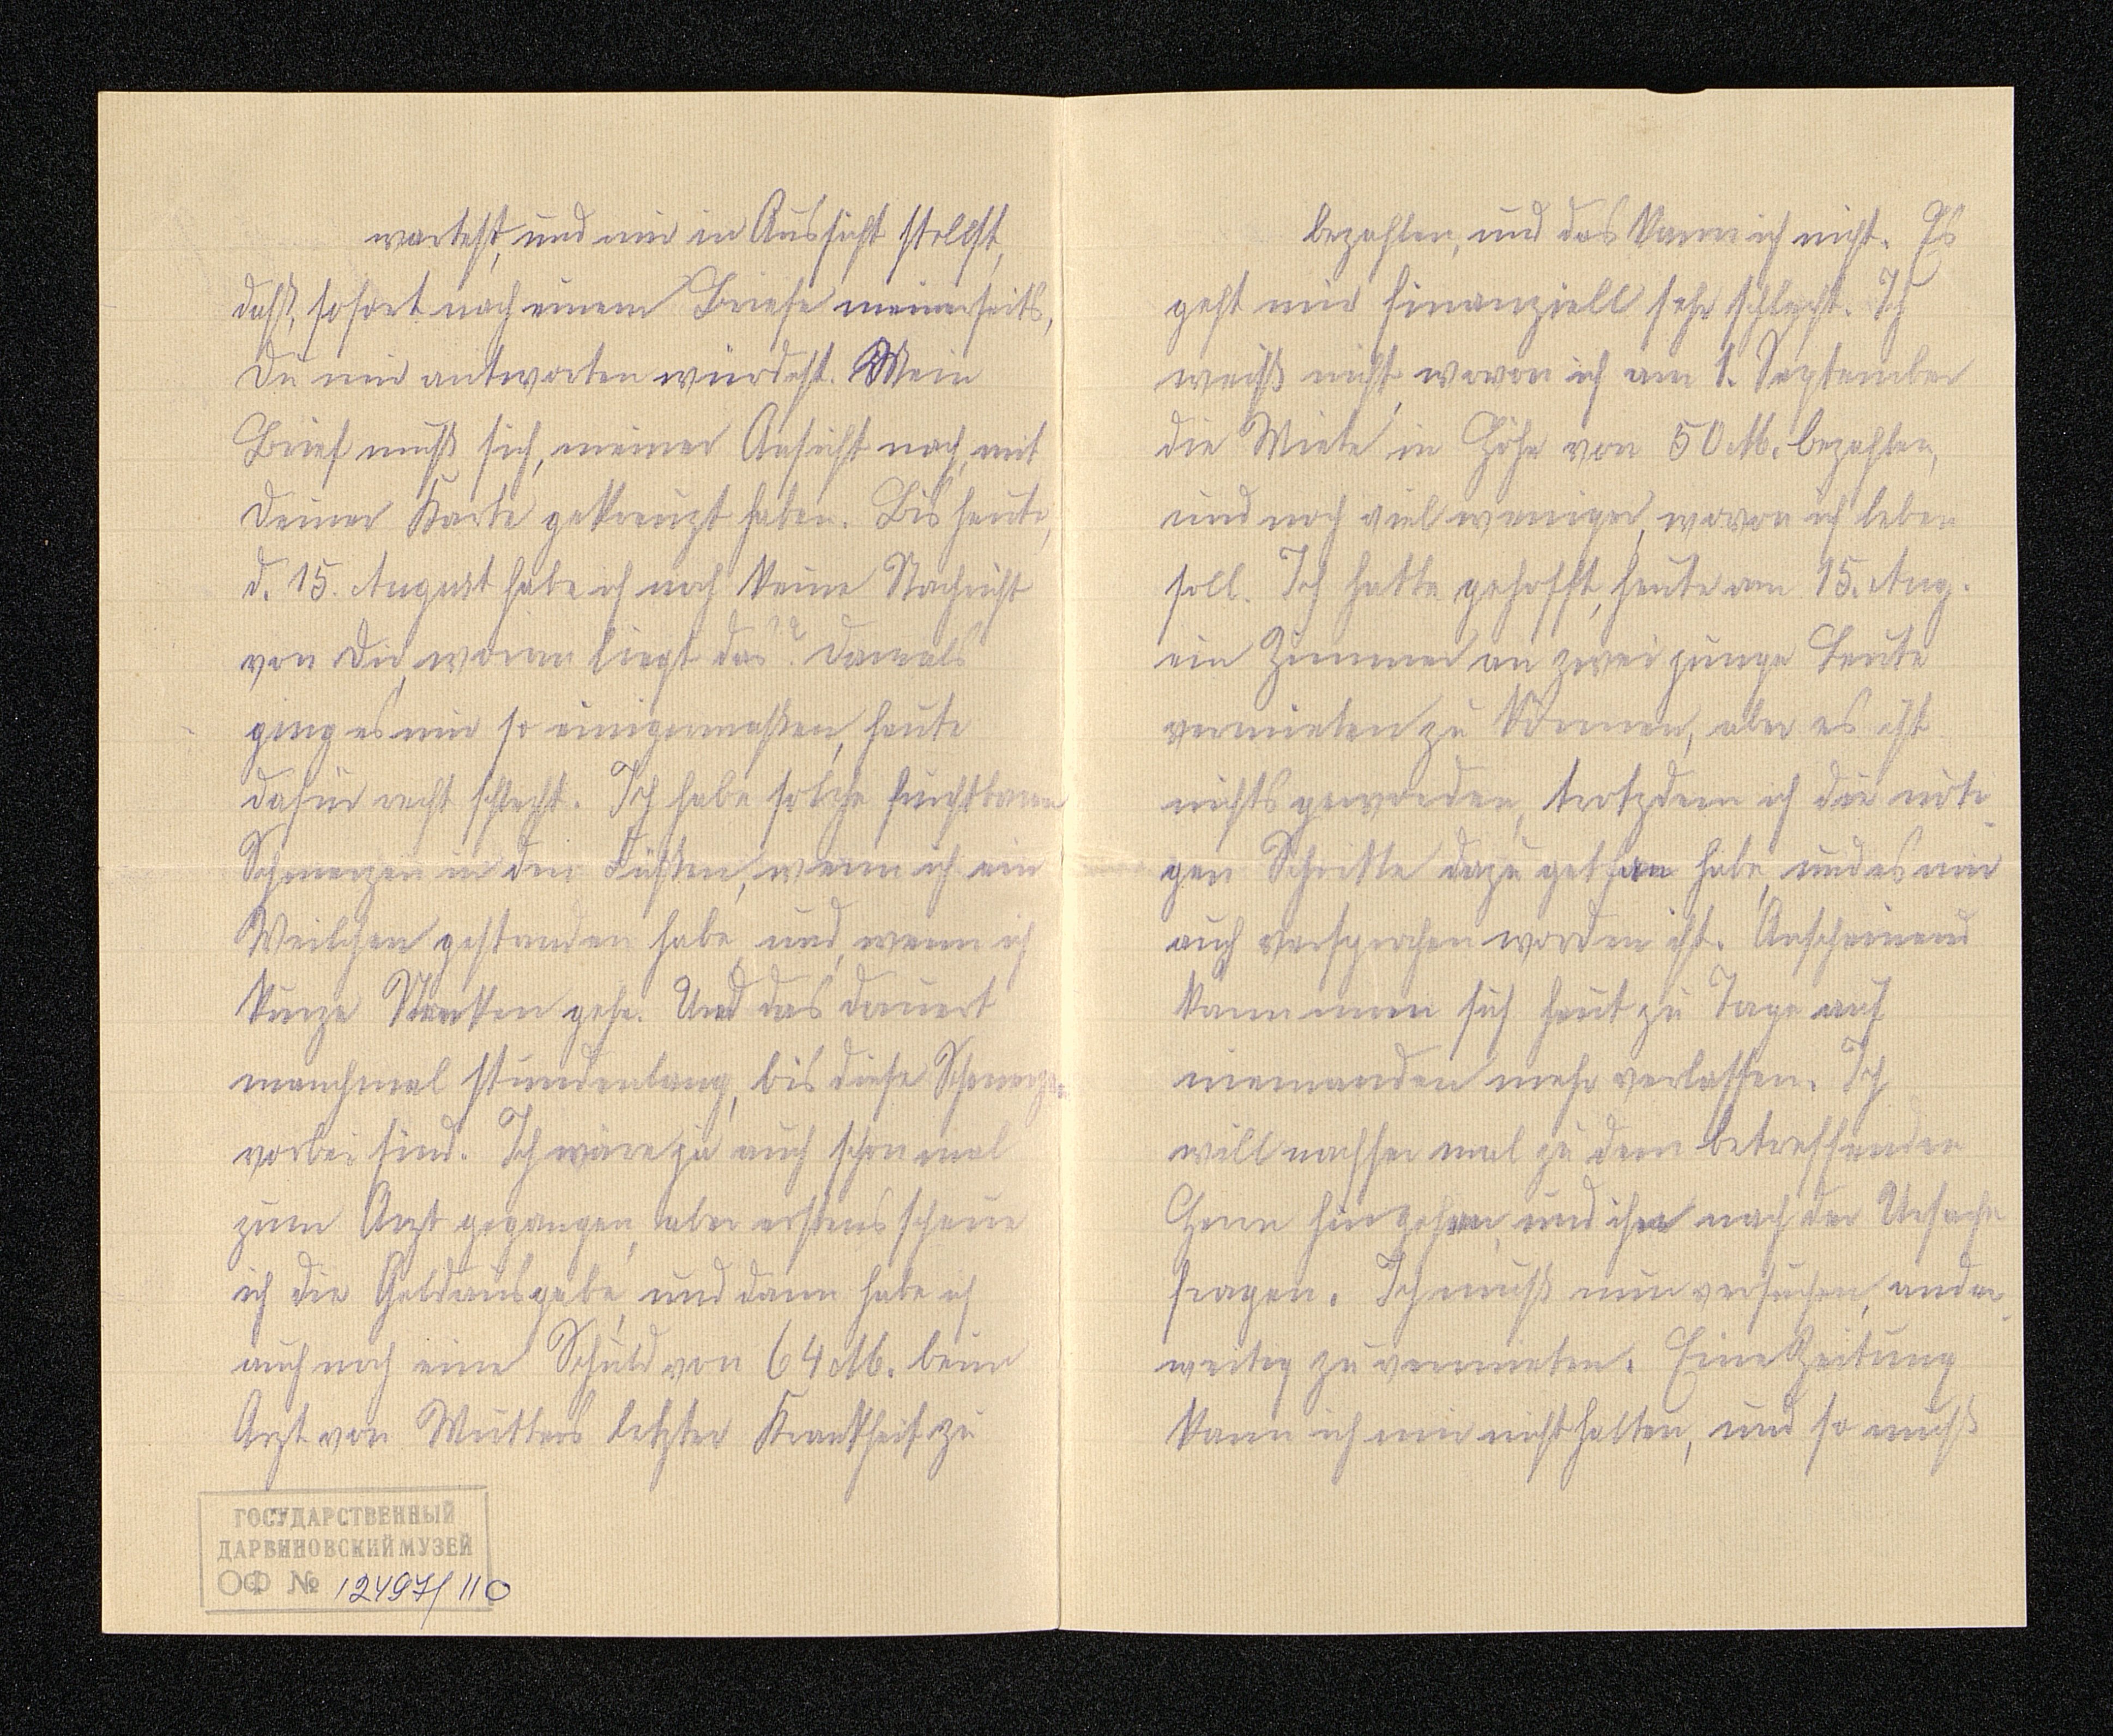 wartest, und mir in Aussicht stellst,
daß, sofort nach einem Briefe meinerseits,
Du mir antworten würdest. Mein
Brief muß sich, meiner Ansicht nach, mit
Deiner Karte gekreuzt haben. Bis heute,
d. 15. August habe ich noch keine Nachricht
von Dir, woran liegt das? Damals
ging es mir so einigermaßen, heute
dafür recht schlecht. Ich habe solche furchtbaren
Schmerzen in den Füßen, wenn ich ein
Weilchen gestanden habe, und, wenn ich
kurze Strecken gehe. Und das dauert
manchmal stundenlang, bis diese Schmerzen
vorbei sind. Ich wäre ja auch schon mal
zum Arzt gegangen, aber erstens scheue
ich die Geldausgabe, und dann habe ich
auch noch eine Schuld von 64 M. beim
Arzt von Mutters letzter Krankheit zu
ГОСУДАРСТВЕННЫЙ
ДАРВИНОВСКИЙ МУЗЕЙ
ОФ № 12497/110
bezahlen, und das kann ich nicht. Es
geht mir finanziell sehr schlecht. Ich
weiß nicht, wovon ich am 1. September
die Miete in Höhe von 50 M. bezahlen,
und noch viel weniger, wovon ich leben
soll. Ich hatte gehofft, heute am 15. Aug.
ein Zimmer an zwei junge Leute
vermieten zu können, aber es ist
nichts geworden, trotzdem ich die nöti-
gen Schritte dazu gethan habe, und es mir
auch versprochen worden ist. Anscheinend
kann man sich heut zu Tage auf
niemanden mehr verlassen. Ich
will nachher mal zu dem betreffenden
Herrn hingehen, und ihn nach der Ursache
fragen. Ich muß nun versuchen, ander-
weitig zu vermieten. Eine Zeitung
kann ich mir nicht halten, und so muß